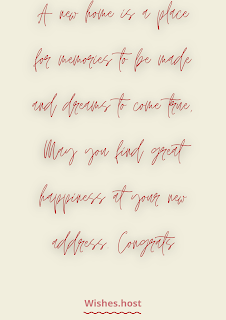 A new home is a place
for memories to be made
and dreams to come true.
May you find great
happiness at your new
address Congrats
Wishes.host